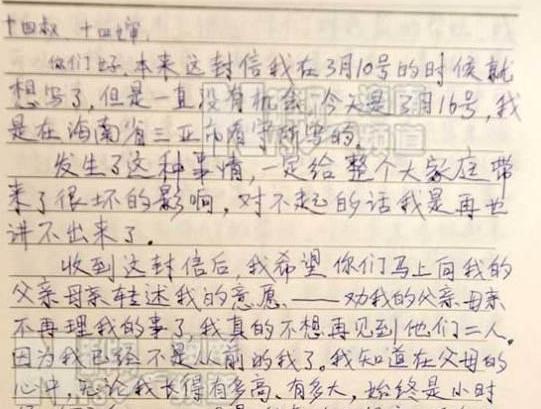 十四叔 十四婶.
你们好.本来这封信我在3月10号的时候就
想写了,但是一直没有机会.今天是3月16号,我
是在海南省三亚市看守所写的.
发生了这种事情,一定给整个大家庭带
来了很坏的影响,对不起的话我是再也
讲不出来了.
收到这封信后,我希望你们马上向我的
父亲母亲转述我的意愿.——劝我的父亲母亲
不再理我的事了,我真的不想再见到他们二人.
因为我已经不是从前的我了.我知道在父母的
心中,无论我长得有多高、有多大,始终是小时